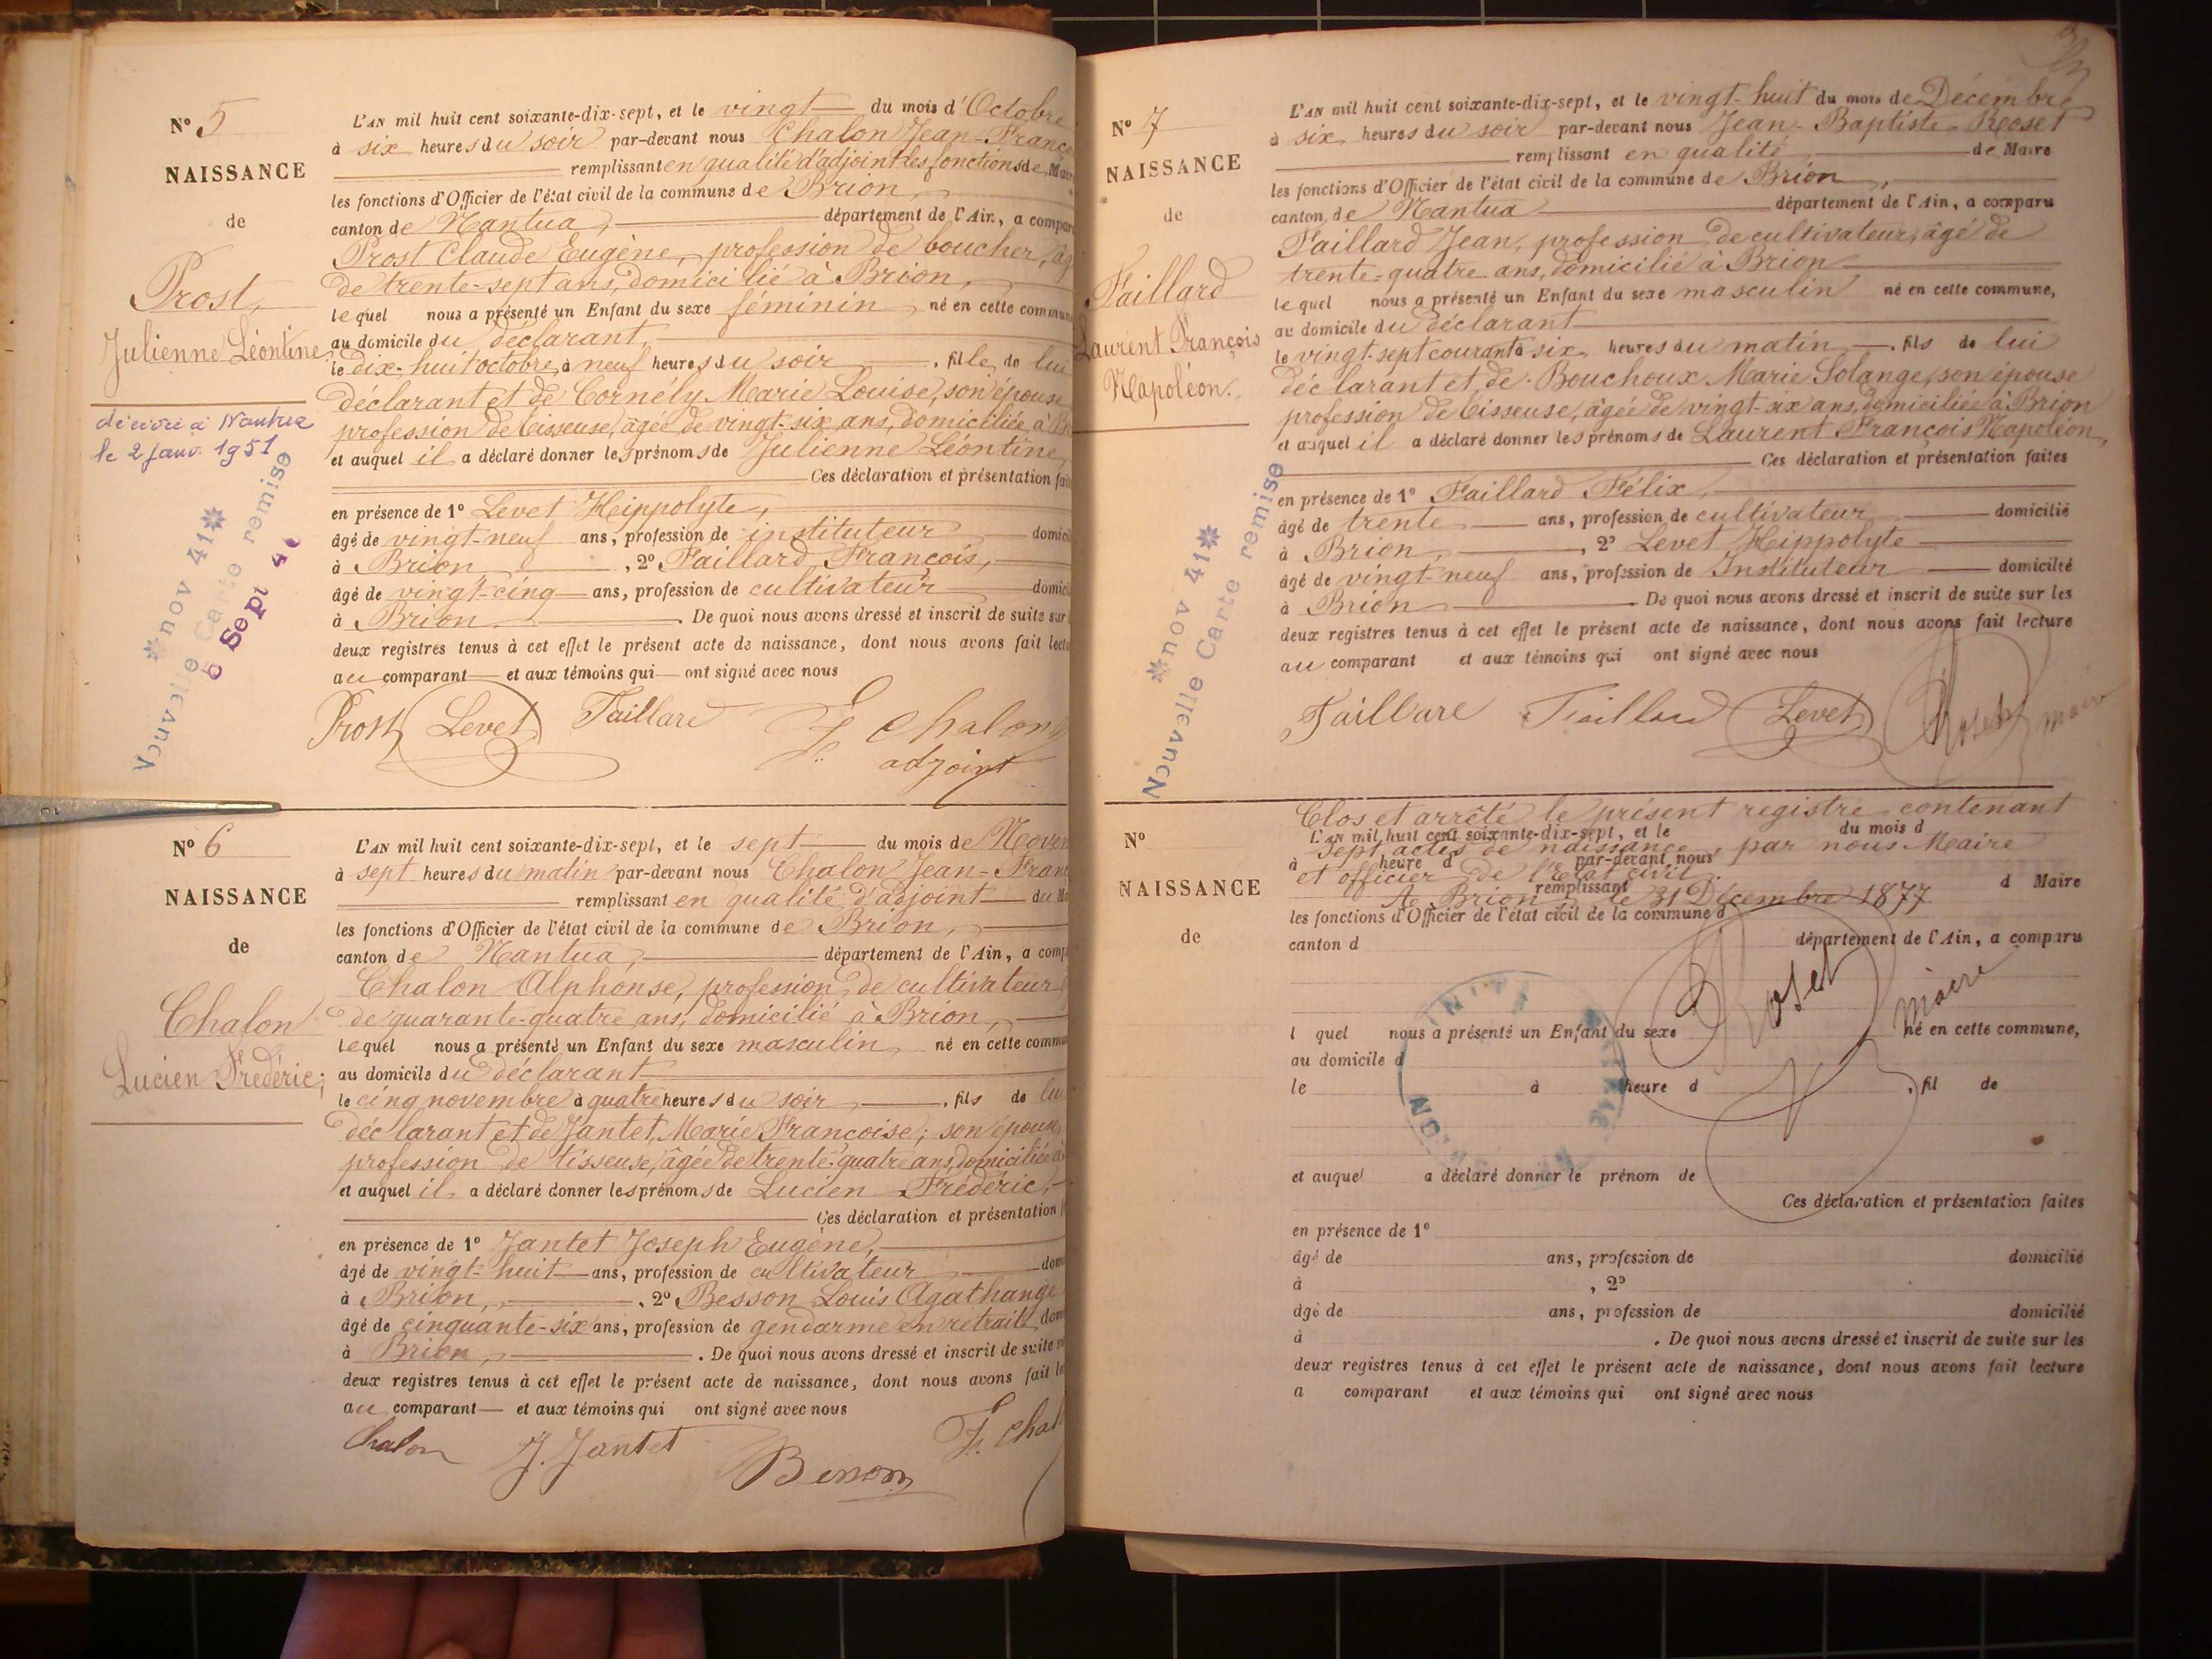 N° 5
NAISSANCE
de
Prost,
Julienne Léontine
décédée à Nantua
le 2 Janv. 1951
*nov 41*
Nouvelle Carte remise
6 Sept 4
L'AN mil huit cent soixante-dix-sept, et le vingt du mois d'Octobre
à six heures du soir par-devant nous Chalon Jean-Franc
remplissant en qualité d'adjoint les fonctions de Mai
les fonctions d'Officier de l'état civil de la commune de Brion,
canton de Nantua, département de l'Ain, a compar
Prost Claude Eugène, profession de boucher, âg
de trente-sept ans, domicilié à Brion,
lequel nous a présenté un Enfant du sexe féminin né en cette commun
au domicile du déclarant,
le dix-huit octobre, à neuf heures du soir, fille de lui
déclarant et de Cornély Marie Louise, son épouse
profession de tisseuse, âgée de vingt-six ans, domiciliée à B
et auquel il a déclaré donner les prénoms de Julienne Léontine,
Ces déclaration et présentation fai
en présence de 1° Levet Hippolyte,
âgé de vingt-neuf ans, profession de instituteur domici
à Brion, 2° Faillard François,
âgé de vingt-cinq ans, profession de cultivateur domici
à Brion. De quoi nous avons dressé et inscrit de suite sur
deux registres tenus à cet effet le présent acte de naissance, dont nous avons fait lectu
au comparant et aux témoins qui ont signé avec nous
Prost Levet Faillard F. Chalon
adjoint
N° 6
NAISSANCE
de
Chalon
Lucien Frédéric;
L'AN mil huit cent soixante-dix-sept, et le sept du mois de Novem
à sept heures du matin par-devant nous Chalon Jean-Fran
remplissant en qualité d'adjoint du Ma
les fonctions d'Officier de l'état civil de la commune de Brion,
canton de Nantua, département de l'Ain, a comp
Chalon Alphonse, profession de cultivateur
de quarante-quatre ans, domicilié à Brion,
lequel nous a présenté un Enfant du sexe masculin né en cette commu
au domicile du déclarant
le cinq novembre à quatre heures du soir, fils de lu
déclarant et de Jantet Marie Françoise; son épouse
profession de tisseuse, âgée de trente-quatre ans, domiciliée à
et auquel il a déclaré donner les prénoms de Lucien Frédéric,
Ces déclaration et présentation
en présence de 1° Jantet Joseph Eugène,
âgé de vingt-huit ans, profession de cultivateur dom
à Brion, 2° Besson Louis Agathange
âgé de cinquante-six ans, profession de gendarme en retraite dom
à Brion. De quoi nous avons dressé et inscrit de suite su
deux registres tenus à cet effet le présent acte de naissance, dont nous avons fait le
au comparant et aux témoins qui ont signé avec nous
Chalon J. Jantet Besson F. Chal
N° 7
NAISSANCE
de
Faillard
Laurent François
Napoléon.
*nov 41*
Nouvelle Carte remise
L'AN mil huit cent soixante-dix-sept, et le vingt-huit du mois de Décembre
à six heures du soir par-devant nous Jean-Baptiste Roset
remplissant en qualité de Maire
les fonctions d'Officier de l'état civil de la commune de Brion,
canton de Nantua département de l'Ain, a comparu
Faillard Jean, profession de cultivateur, âgé de
trente-quatre ans, domicilié à Brion
lequel nous a présenté un Enfant du sexe masculin né en cette commune,
au domicile du déclarant
le vingt-sept courant à six heures du matin, fils de lui
déclarant et de Bouchoux Marie Solange, son épouse
profession de tisseuse, âgée de vingt-six ans, domiciliée à Brion
et auquel il a déclaré donner les prénoms de Laurent François Napoléon,
Ces déclaration et présentation faites
en présence de 1° Faillard Félix,
âgé de trente ans, profession de cultivateur domicilié
à Brion, 2° Levet Hippolyte
âgé de vingt-neuf ans, profession de Instituteur domicilié
à Brion. De quoi nous avons dressé et inscrit de suite sur les
deux registres tenus à cet effet le présent acte de naissance, dont nous avons fait lecture
au comparant et aux témoins qui ont signé avec nous
Faillard Faillard Levet Roset maire
N°
NAISSANCE
de
Clos et arrêté le présent registre contenant
L'AN mil huit cent soixante-dix-sept, et le du mois d
sept actes de naissance, par nous Maire
à heure d par-devant nous
et officier de l'état civil.
remplissant d Maire
A Brion, le 31 Décembre 1877.
les fonctions d'Officier de l'état civil de la commune d
canton d département de l'Ain, a comparu
Roset maire
l quel nous a présenté un Enfant du sexe né en cette commune,
au domicile d
le à heure d , fil de
et auquel a déclaré donner le prénom de
Ces déclaration et présentation faites
en présence de 1°
âgé de ans, profession de domicilié
à , 2°
âgé de ans, profession de domicilié
à . De quoi nous avons dressé et inscrit de suite sur les
deux registres tenus à cet effet le présent acte de naissance, dont nous avons fait lecture
a comparant et aux témoins qui ont signé avec nous